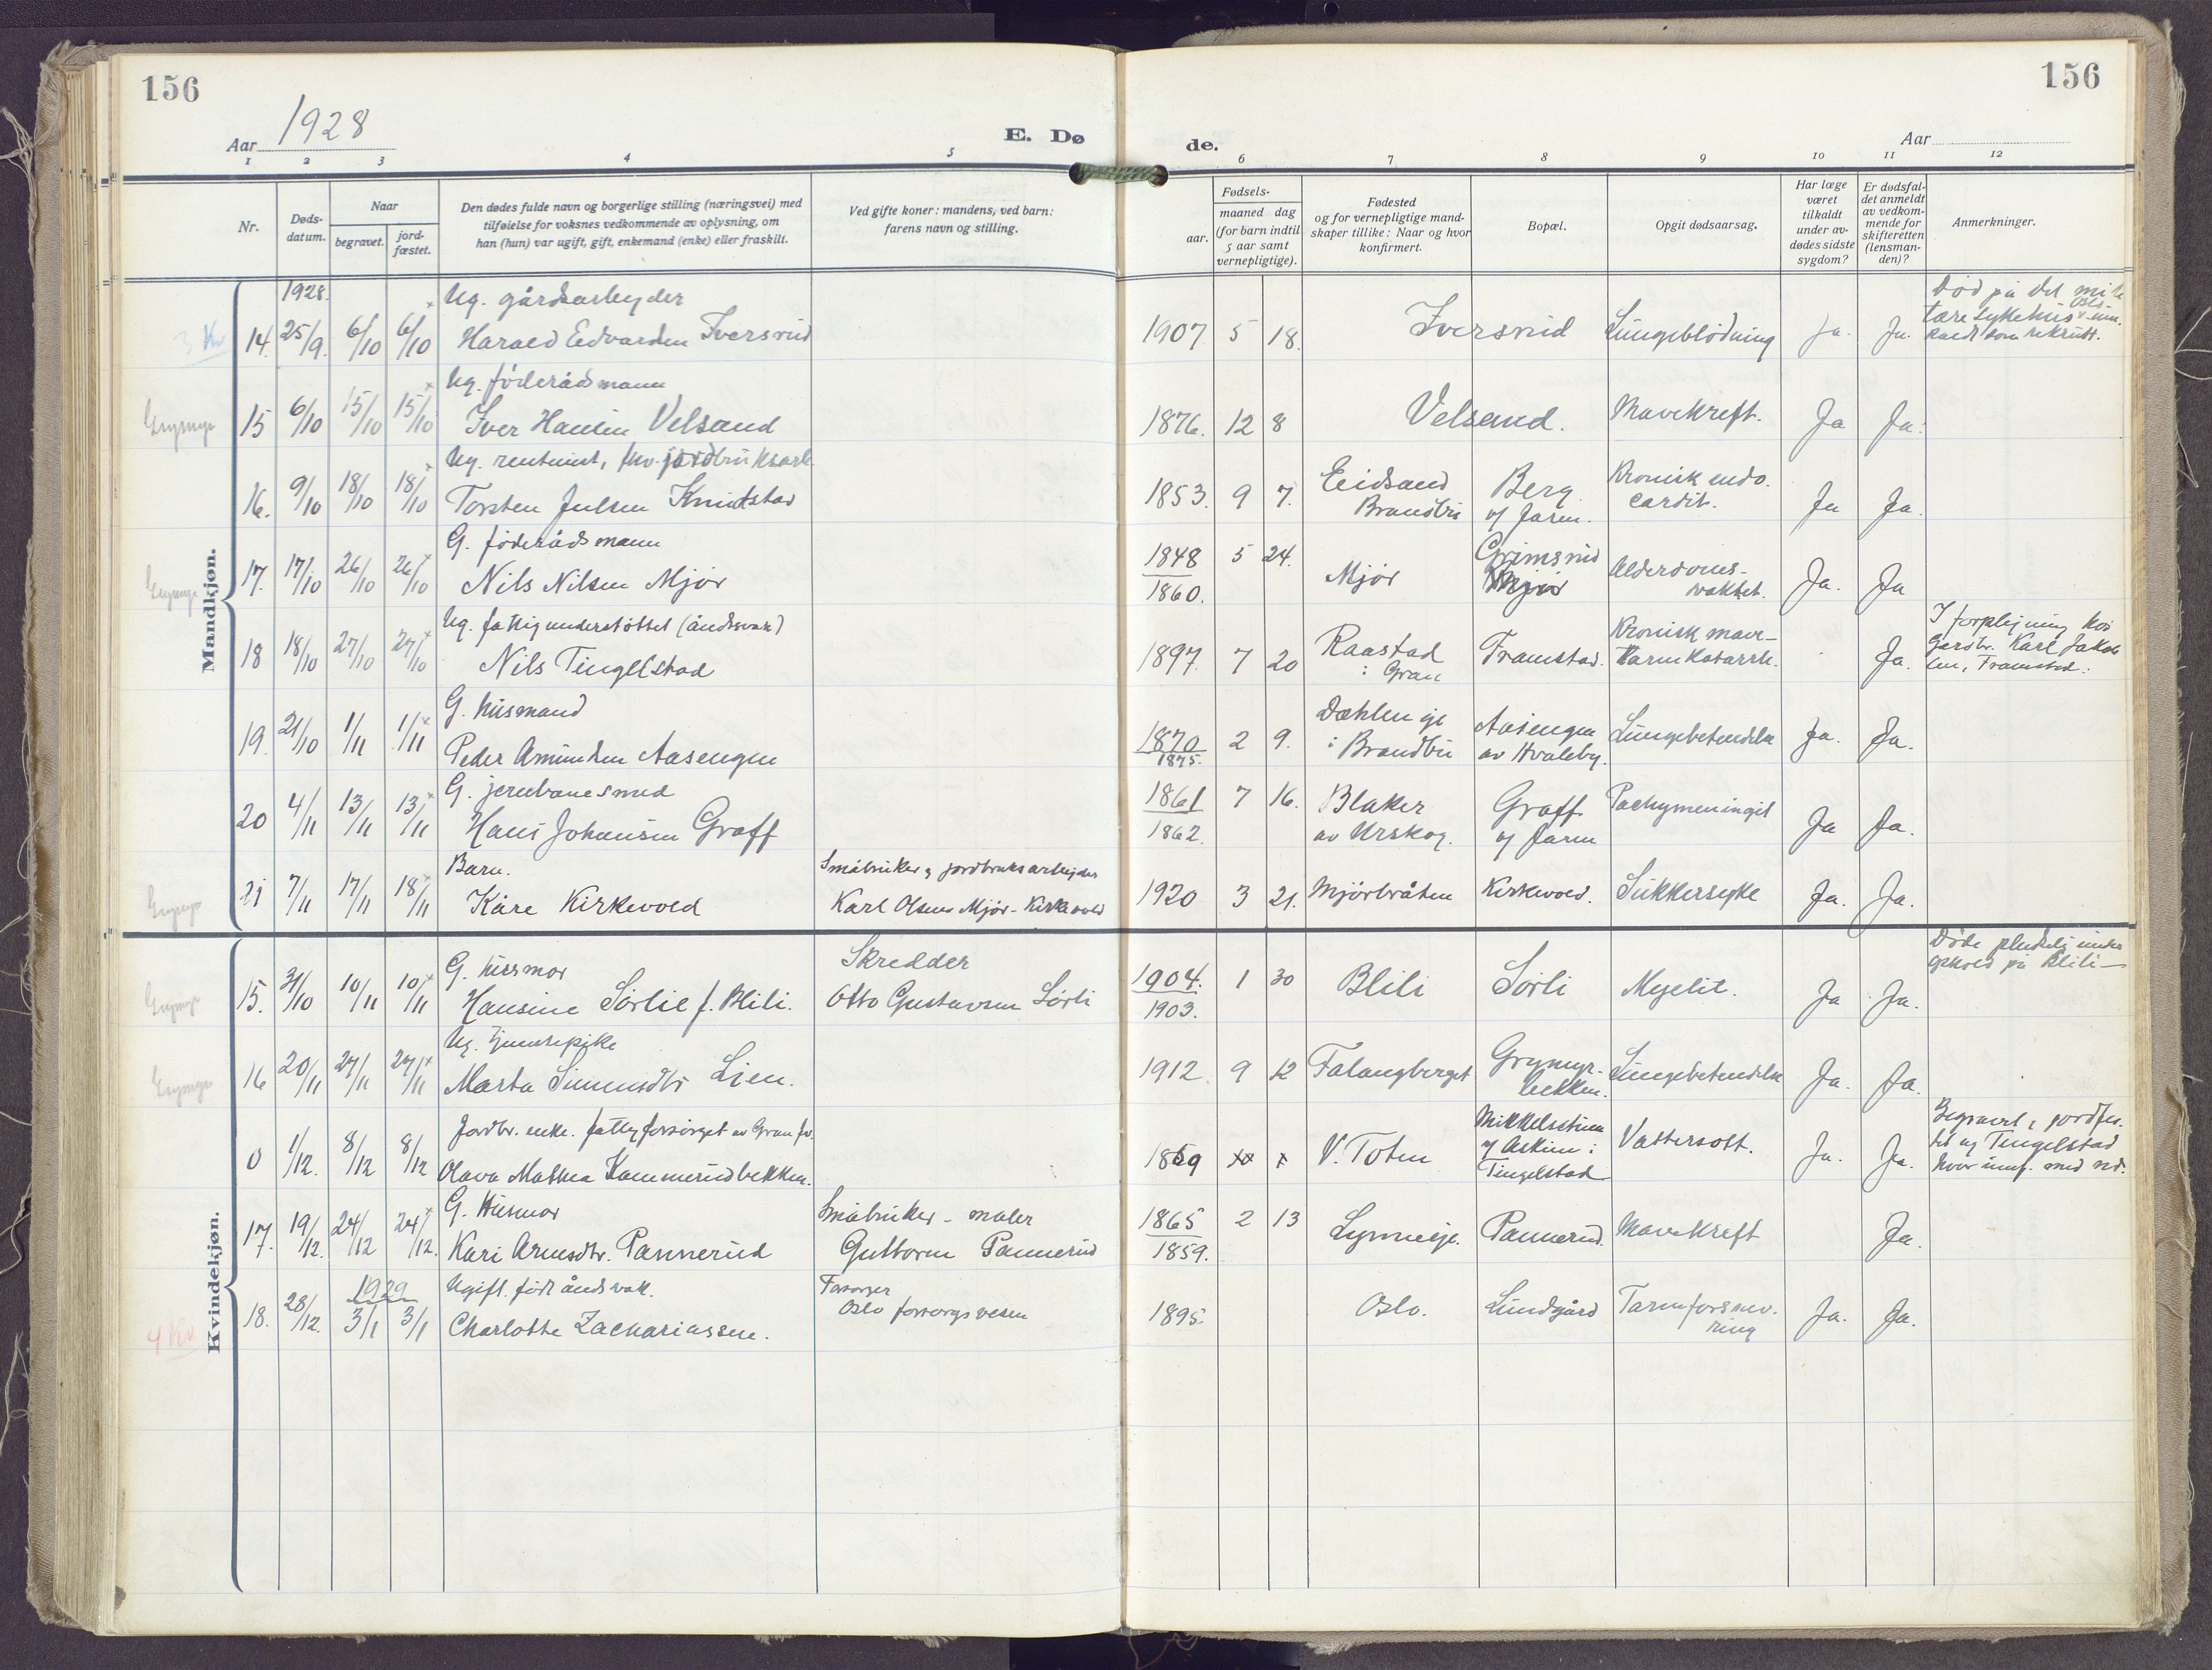 156
156
Aar 1928
E. Dø
de.
Aar
1 2 3 4 5
6 7 8 9 10 11 12
Nr.
Døds-
datum.
Naar
begravet.
jord-
fæstet.
Den dødes fulde navn og borgerlige stilling (næringsvei) med
tilføielse for voksnes vedkommende av oplysning, om
han (hun) var ugift, gift, enkemand (enke) eller fraskilt.
Ved gifte koner: mandens, ved barn:
farens navn og stilling.
Fødsels-
aar.
maaned dag
(for barn indtil
5 aar samt
vernepligtige).
Fødested
og for vernepligtige mand-
skaper tillike: Naar og hvor
konfirmert.
Bopæl.
Opgit dødsaarsag.
Har læge
været
tilkaldt
under av-
dødes sidste
sygdom?
Er dødsfal-
det anmeldt
av vedkom-
mende for
skifteretten
(lensman-
den)?
Anmerkninger.
Mandkjøn.
1928.
Ug. gårdsarbeyder
14. 25/9. 6/10 6/10 Harald Edvardsen Iversrud
1907. 5 18. Iversrud Lungeblödning Ja. Ja.
Död på det mili
tære sykehus
som rekrutt.
Ug. föderådsmann
15 6/10 15/10 15/10 Iver Hansen Velsand
1876. 12 8 Velsand. Mavekreft. Ja Ja.
Ug. rentenist, fhv. jordbruksarb.
16. 9/10 18/10 18/10 Torsten Julsen Knutstad
1853. 9 7. Eidsand
Brandbu
Berg
o/ Jaren.
Kronisk endo.
cardit.
Ja Ja.
G. föderådsmann
17. 17/10 26/10 26/10 Nils Nilsen Mjör
1848
1860. 5 24. Mjör
Grimsrud
Mjör
Alderdoms-
svakhet.
Ja. Ja
Ug. fattigunderstöttet (åndssvak)
18 18/10 27/10 27/10 Nils Tingelstad
1897. 7 20 Raastad
i Gran
Framstad.
Kronisk mave-
tarmkatarrh.
Ja.
I forplejning hos
Gardbr. Karl Jakob
sen, Framstad.
G. husmand
19. 21/10 1/11 1/11 Peder Amundsen Aasengen
1870
1875. 2 9. Dæhlen eje
i Brandbu
Aasengen
av Hvaleby.
Lungebetendelse Ja. Ja.
G. jernbanesmed
20 4/11 13/11 13/11 Hans Johansen Graff
1861
1862. 7 16. Blaker
av Urskog.
Graff
o/ Jaren
Pachymeningit Ja Ja.
Barn.
21 7/11 17/11 18/11 Kåre Kirkevold
Småbruker og jordbruksarbejder
Karl Olsen Mjör-Kirkevold
1920 3 21. Mjörbråten Kirkevold. Sukkersyke Ja. Ja.
Kvindekjøn.
G. husmor
15. 31/10 10/11 10/11 Hansine Sörlie f. Blili.
Skredder
Otto Gustavsen Sörli
1904.
1903. 1 30 Blili Sörli Myelit. Ja Ja.
Döde pludselig under
ophold på Blili
Ug. tjenestepike
16 20/11 27/11 27/11 Marta Simensdtr Lien.
1912. 9 12 Falangberget
Grymyr-
bekken.
Lungebetendelse Ja. Ja.
Jordbr. enke. fattigforsörget av Gran fv.
0 1/12. 8/12 8/12 Olava Mathea Kammerudbekken.
1869 V. Toten
Mikkelsstuen
o/ Askim i
Tingelstad
Vattersott. Ja. Ja.
Begravet, jordfes-
tet og Tingelstad
hvor innf. med nr.
G. Husmor
17. 19/12. 24/12 24/12. Kari Arnesdtr. Pannerud
Småbruker - maler
Guttorm Pannerud
1865
1859. 2 13 Lynneeje. Pannerud. Mavekreft Ja.
1929
Ugift. född åndssvak.
18. 28/12. 3/1 3/1 Charlotte Zachariassen.
Forsorger
Oslo forsorgsvesen
1895. Oslo. Lundgård
Tarmforsnev.
ring
Ja. Ja.
4 Kv